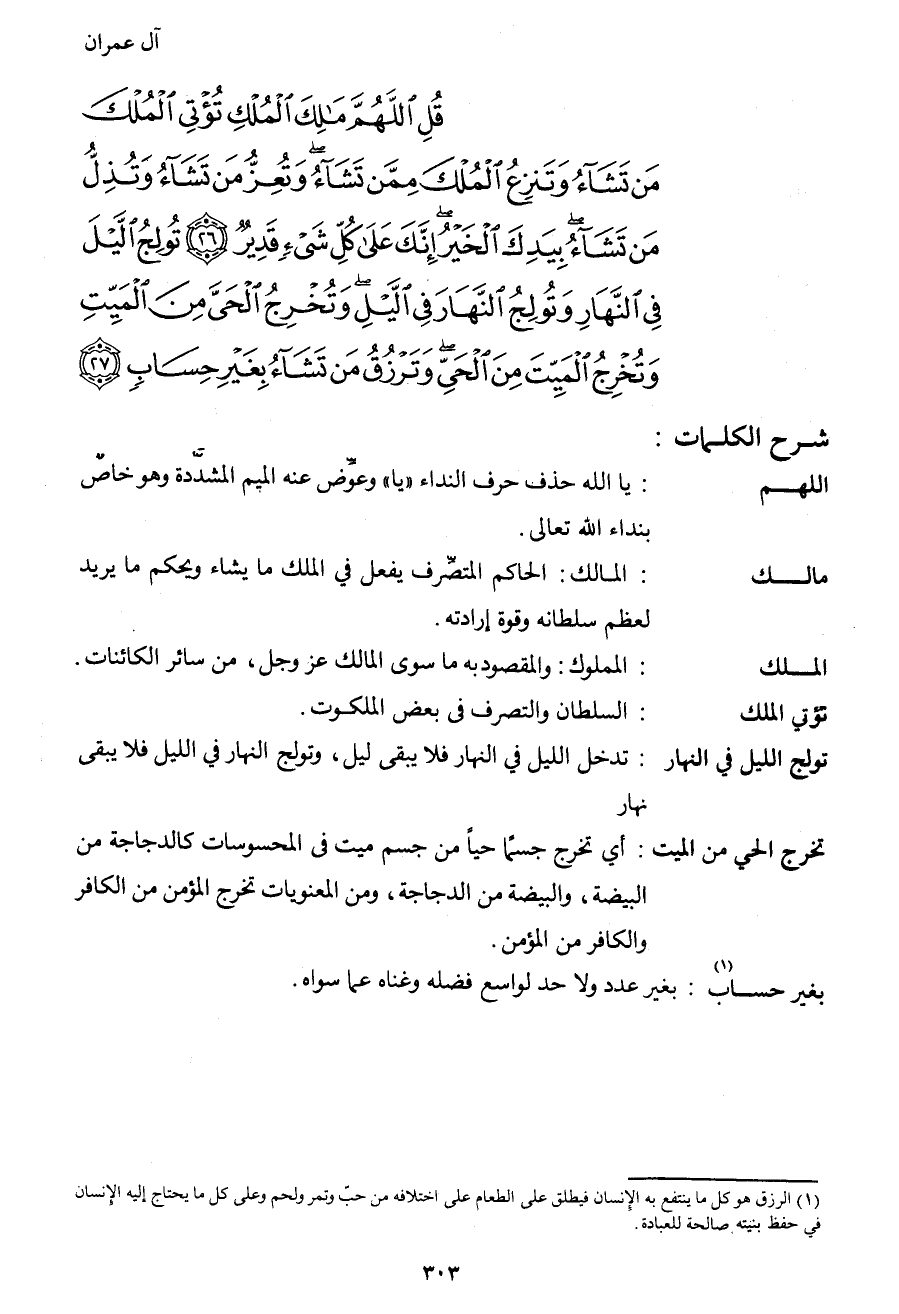 آل عمران
قُلِ ٱللَّهُمَّ مَـٰلِكَ ٱلۡمُلۡكِ تُؤۡتِي ٱلۡمُلۡكَ
مَن تَشَآءُ وَتَنزِعُ ٱلۡمُلۡكَ مِمَّن تَشَآءُۖ وَتُعِزُّ مَن تَشَآءُ وَتُذِلُّ
مَن تَشَآءُۖ بِيَدِكَ ٱلۡخَيۡرُۖ إِنَّكَ عَلَىٰ كُلِّ شَىۡءٍ قَدِيرٌ ٢٦ تُولِجُ ٱلَّيۡلَ
فِي ٱلنَّهَارِ وَتُولِجُ ٱلنَّهَارَ فِي ٱلَّيۡلِۖ وَتُخۡرِجُ ٱلۡحَىَّ مِنَ ٱلۡمَيِّتِ
وَتُخۡرِجُ ٱلۡمَيِّتَ مِنَ ٱلۡحَىِّۖ وَتَرۡزُقُ مَن تَشَآءُ بِغَيۡرِ حِسَابٍ ٢٧
شرح الكلمات :
اللهم : يا الله حذف حرف النداء «يا» وعوِّض عنه الميم المشدَّدة وهو خاصٌ
بنداء الله تعالى.
مالك : المالك : الحاكم المتصِّرف يفعل في الملك ما يشاء ويحكم ما يريد
لعظم سلطانه وقوة إرادته.
الملك : المملوك : والمقصود به ما سوى المالك عز وجل، من سائر الكائنات.
تؤتي الملك : السلطان والتصرف فى بعض الملكوت.
تولج الليل في النهار : تدخل الليل في النهار فلا يبقى ليل، وتولج النهار في الليل فلا يبقى
نهار
تخرج الحي من الميت : أي تخرج جسمًا حياً من جسم ميت فى المحسوسات كالدجاجة من
البيضة، والبيضة من الدجاجة، ومن المعنويات تخرج المؤمن من الكافر
والكافر من المؤمن.
بغير حساب(١) : بغير عدد ولا حد لواسع فضله وغناه عما سواه.
(١) الرزق هو كل ما ينتفع به الإنسان فيطلق على الطعام على اختلافه من حبّ وتمر ولحم وعلى كل ما يحتاج إليه الإنسان
في حفظ بنيته صالحة للعبادة.
٣٠٣